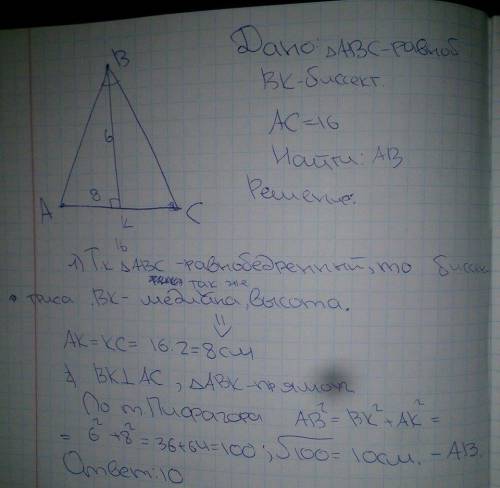 Дано: △ABC-равноб
BK-биссект.
AC=16
Найти: AB
Решение:
B
6
A
8
K
C
16
1) Т.к △ABC -равнобедренный, то биссек
так же
триса BK- медиана, высота.
⇓
AK=KC= 16:2=8см
2) BK⊥AC, △ABK-прямоуг
По т. Пифагора AB²=BK²+AK²=
=6²+8²=36+64=100; √100=10см. -AB.
Ответ: 10